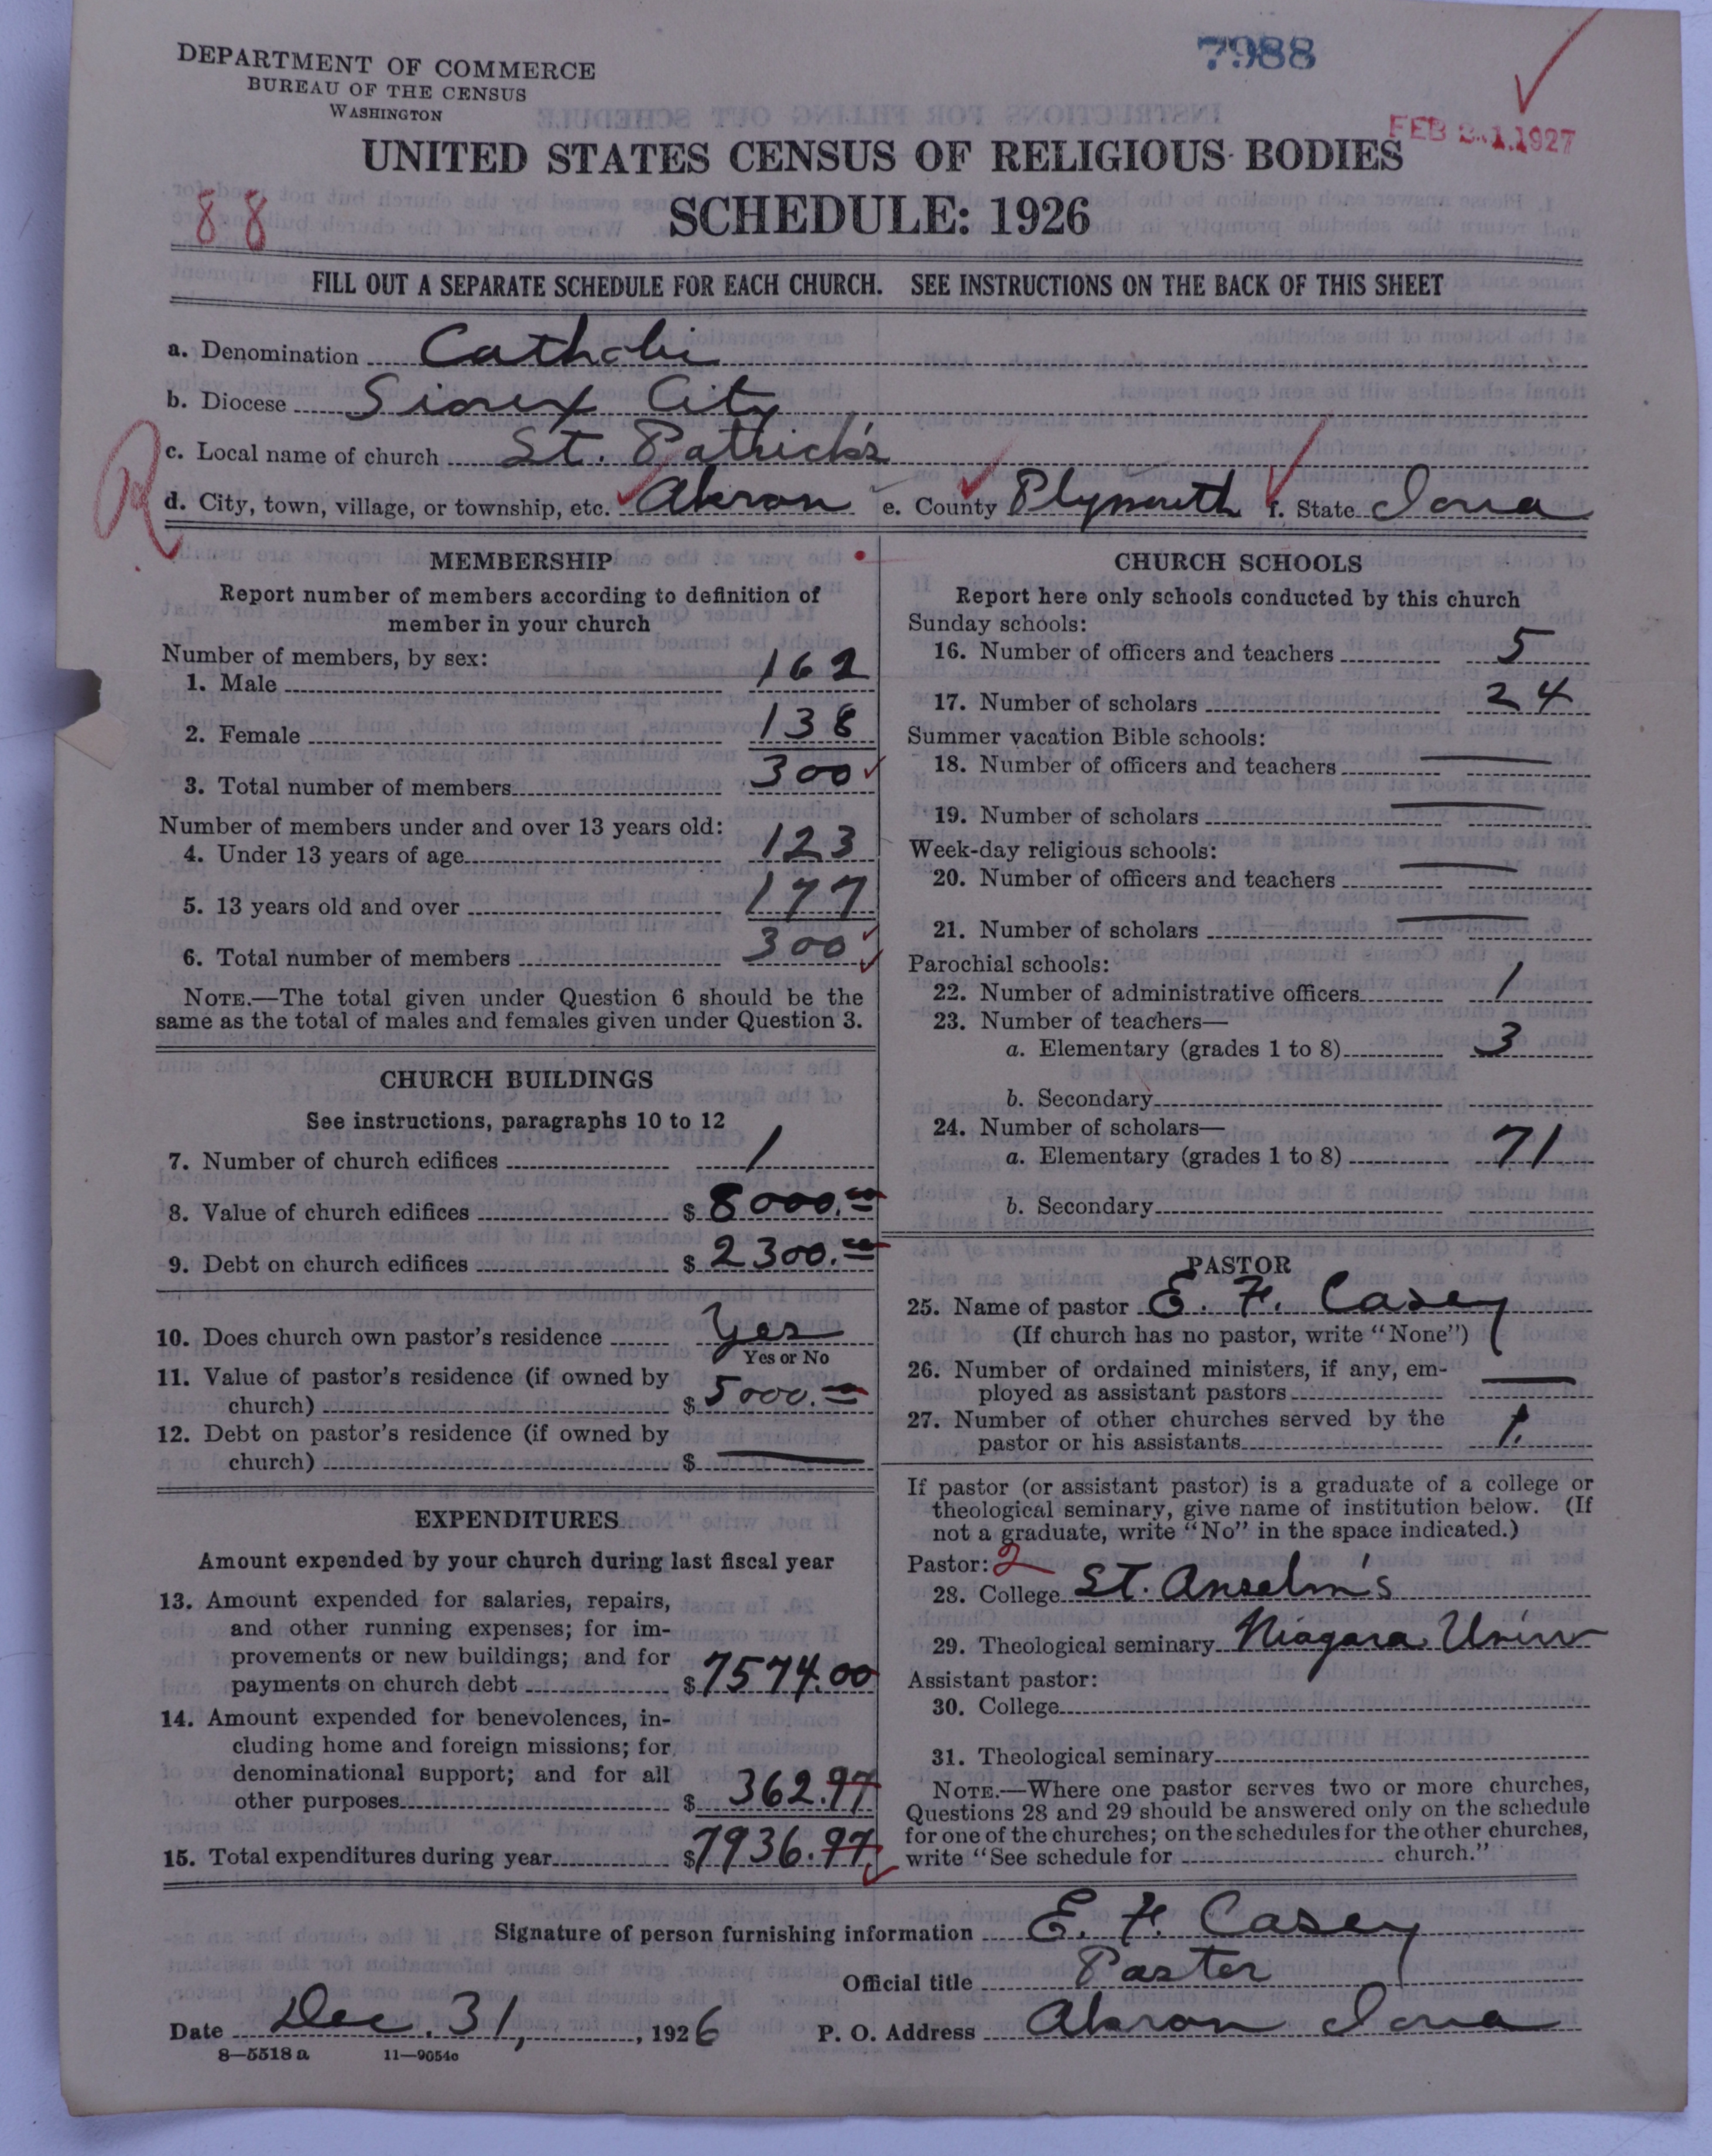 DEPARTMENT OF COMMERCE
BUREAU OF THE CENSUS
WASHINGTON
7988
FEB 21 1927
UNITED STATES CENSUS OF RELIGIOUS BODIES
SCHEDULE: 1926
88
FILL OUT A SEPARATE SCHEDULE FOR EACH CHURCH. SEE INSTRUCTIONS ON THE BACK OF THIS SHEET
a. Denomination Catholic
b. Diocese Sioux City
c. Local name of church St. Patrick's
R
d. City, town, village, or township, etc. Akron e. County Plymouth f. State Iowa
MEMBERSHIP
Report number of members according to definition of
member in your church
Number of members, by sex:
1. Male 162
2. Female 138
3. Total number of members 300
Number of members under and over 13 years old:
4. Under 13 years of age 123
5. 13 years old and over 177
6. Total number of members 300
NOTE.—The total given under Question 6 should be the
same as the total of males and females given under Question 3.
CHURCH BUILDINGS
See instructions, paragraphs 10 to 12
7. Number of church edifices 1
8. Value of church edifices $ 8000.00
9. Debt on church edifices $ 2300.00
10. Does church own pastor's residence Yes
Yes or No
11. Value of pastor's residence (if owned by
church) $ 5000.00
12. Debt on pastor's residence (if owned by
church) $ —
EXPENDITURES
Amount expended by your church during last fiscal year
13. Amount expended for salaries, repairs,
and other running expenses; for im-
provements or new buildings; and for
payments on church debt $ 7574.00
14. Amount expended for benevolences, in-
cluding home and foreign missions; for
denominational support; and for all
other purposes $ 362.97
15. Total expenditures during year $ 7936.97
CHURCH SCHOOLS
Report here only schools conducted by this church
Sunday schools:
16. Number of officers and teachers 5
17. Number of scholars 24
Summer vacation Bible schools:
18. Number of officers and teachers —
19. Number of scholars —
Week-day religious schools:
20. Number of officers and teachers —
21. Number of scholars —
Parochial schools:
22. Number of administrative officers 1
23. Number of teachers—
a. Elementary (grades 1 to 8) 3
b. Secondary
24. Number of scholars—
a. Elementary (grades 1 to 8) 71
b. Secondary
PASTOR
25. Name of pastor E. F. Casey
(If church has no pastor, write "None")
26. Number of ordained ministers, if any, em-
ployed as assistant pastors —
27. Number of other churches served by the
pastor or his assistants 1.
If pastor (or assistant pastor) is a graduate of a college or
theological seminary, give name of institution below. (If
not a graduate, write "No" in the space indicated.)
Pastor: 2
28. College St. Anselm's
29. Theological seminary Niagara Univ
Assistant pastor:
30. College
31. Theological seminary
NOTE.—Where one pastor serves two or more churches,
Questions 28 and 29 should be answered only on the schedule
for one of the churches; on the schedules for the other churches,
write "See schedule for church."
Signature of person furnishing information E. F. Casey
Official title Pastor
Date Dec. 31, , 1926 P. O. Address Akron Iowa
8—5518 a 11—9054c